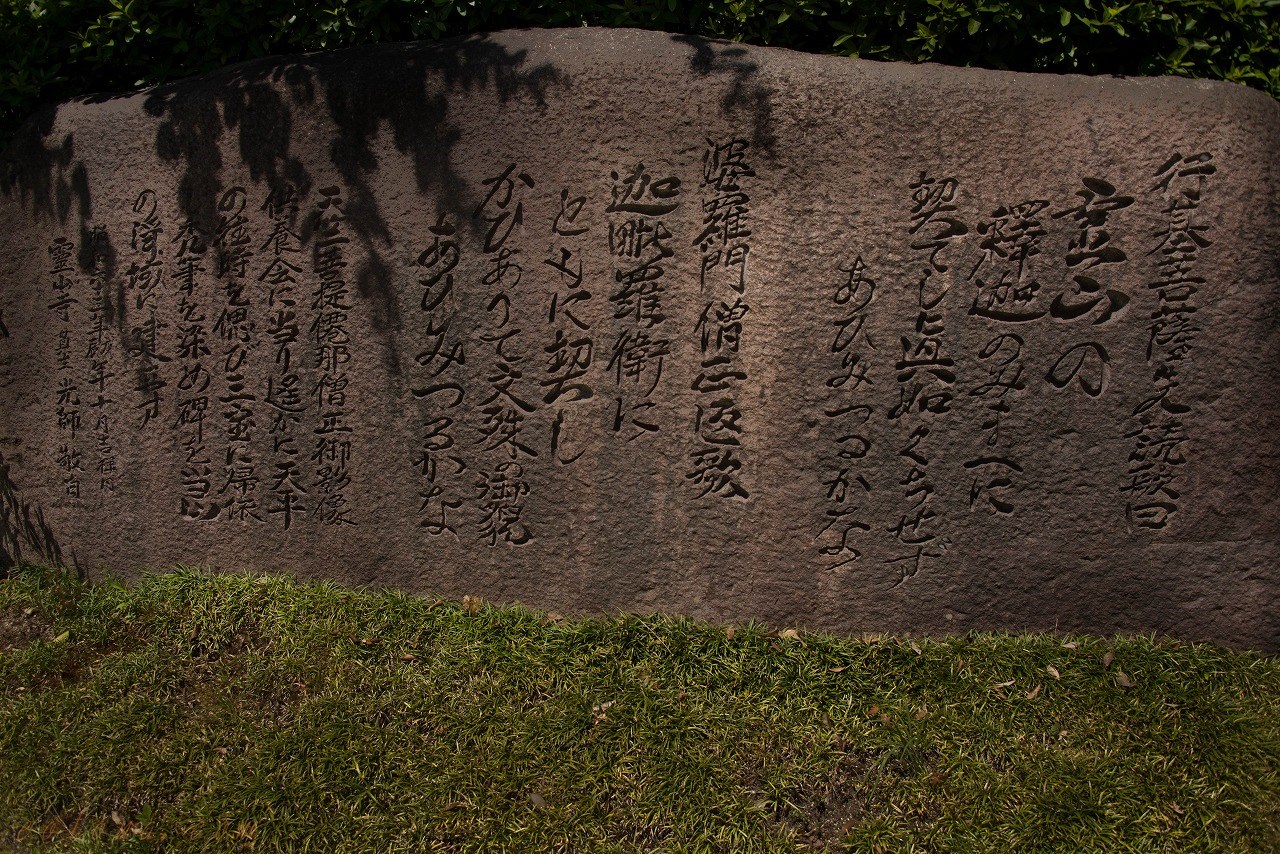 行基菩薩先読歌曰
霊山の
釋迦のみまへに
契てし真如くちせず
あひみつるかな
婆羅門僧正返歌
迦毗羅衛に
ともに契し
かひありて文殊の御貌
あひみつるかな
天竺菩提僊那僧正御影像
供養会に当り遙かに天平
の往時を偲び三宝に帰依
禿筆を染め碑を当山
の浄域に建立す
年十月吉祥日
霊山寺 光師 敬白